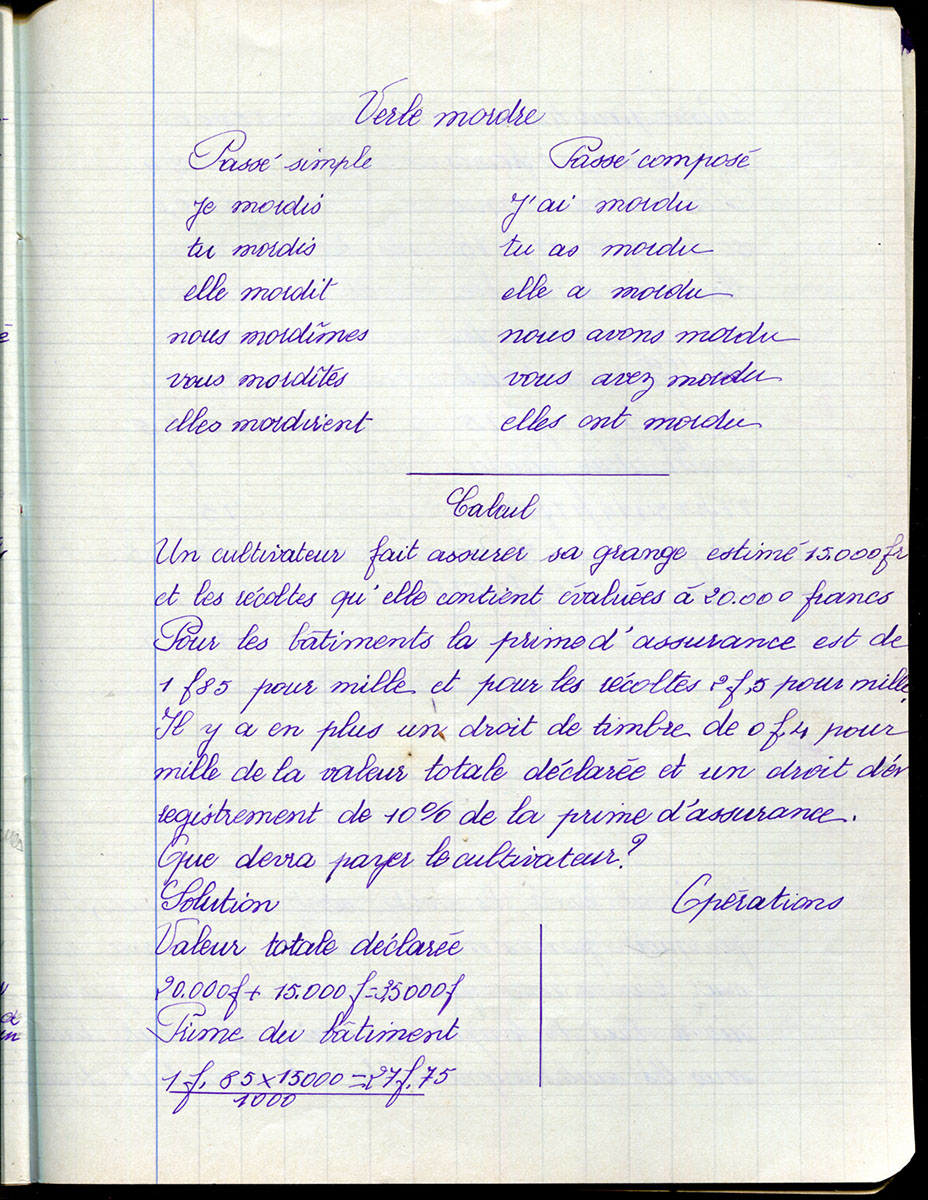 Verbe mordre
Passé simple Passé composé
je mordis J'ai mordu
tu mordis tu as mordu
elle mordit elle a mordu
nous mordîmes nous avons mordu
vous mordîtes vous avez mordu
elles mordirent elles ont mordu
Calcul
Un cultivateur fait assurer sa grange estimé 15.000 fr
et les récoltes qu'elle contient évaluées à 20.000 francs
Pour les bâtiments la prime d'assurance est de
1 f 85 pour mille et pour les récoltes 2 f,5 pour mille
Il y a en plus un droit de timbre de 0 f,4 pour
mille de la valeur totale déclarée et un droit d'en
registrement de 10% de la prime d'assurance.
Que devra payer le cultivateur?
Solution Opérations
Valeur totale déclarée
20.000f + 15.000 f = 35000f
Prime du bâtiment
1 f, 85 x 15000 = 27 f, 75
1000